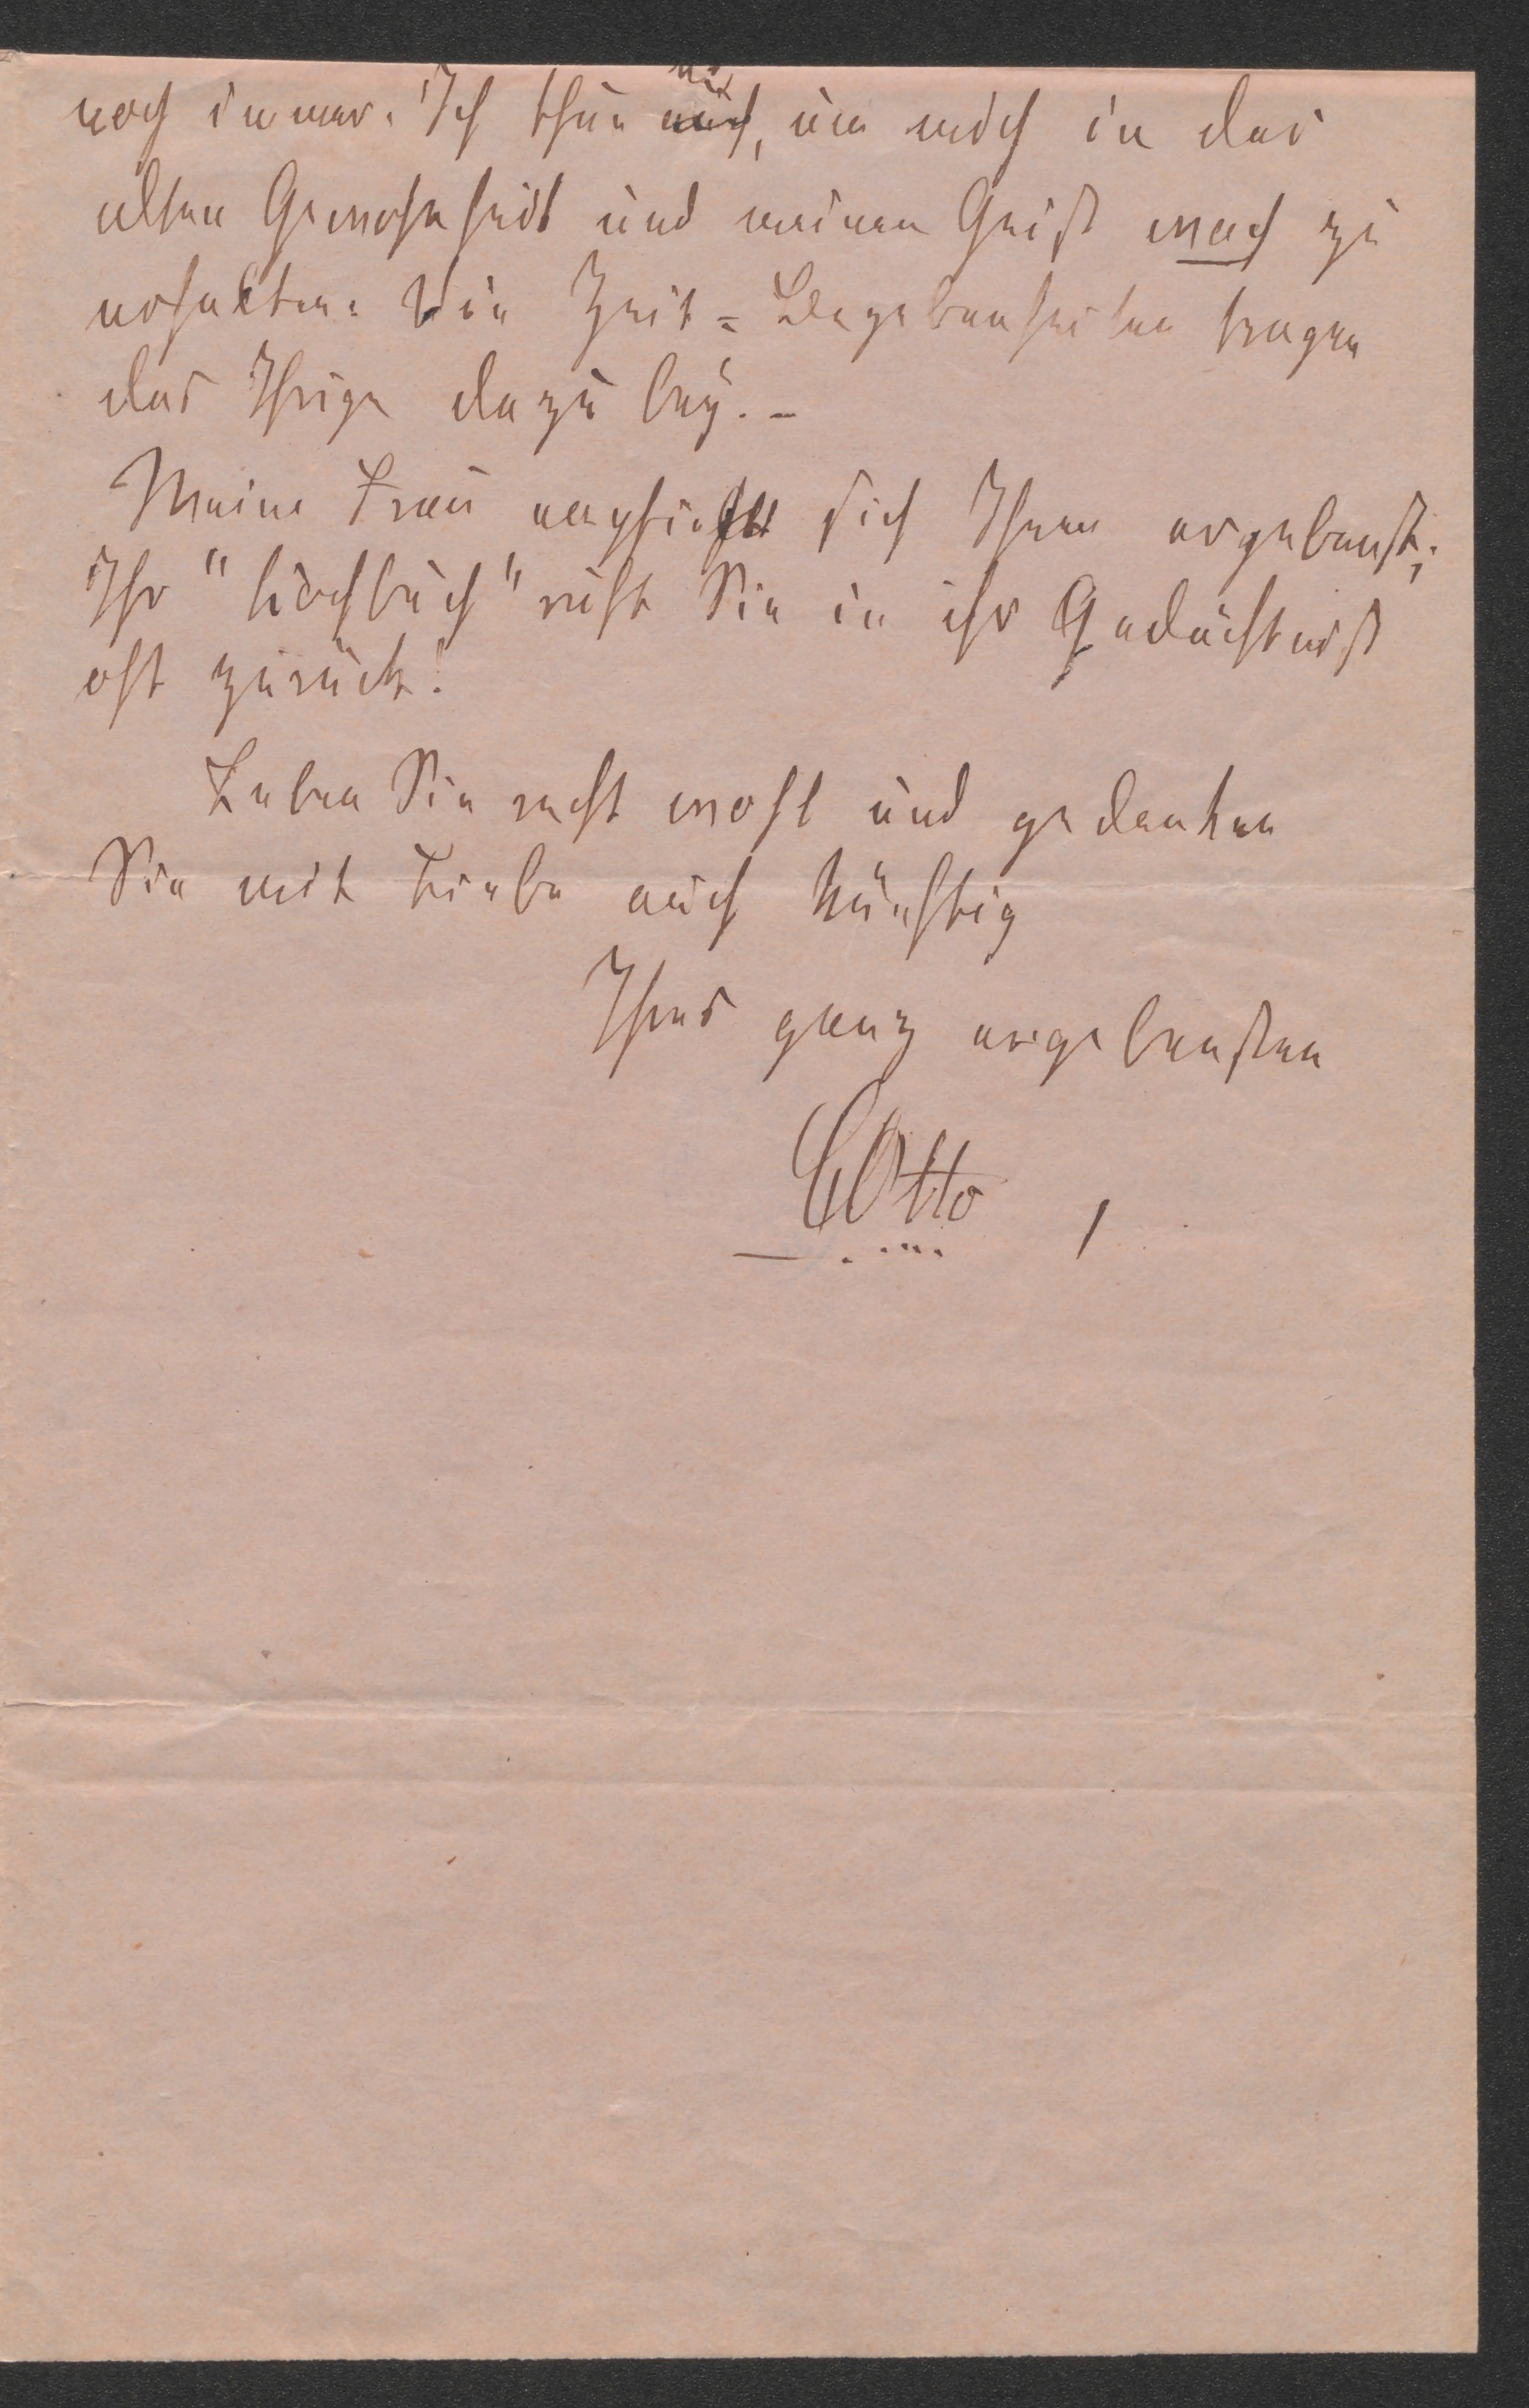 noch immer. Ich thue auch, um mich in der
alten Gewohnheit und meinen Geist wach zu
erhalten. Die Zeit=Begebenheiten tragen
das Ihrige dazu bey.-
Meine Frau empfiehlt sich Ihnen ergebenst;
Ihr "Kochbuch" ruft Sie in ihr Gedächtniß
oft zurück!
Leben Sie recht wohl und gedenken
Sie mit Liebe auch künftig
Ihres ganz ergebensten
COtto